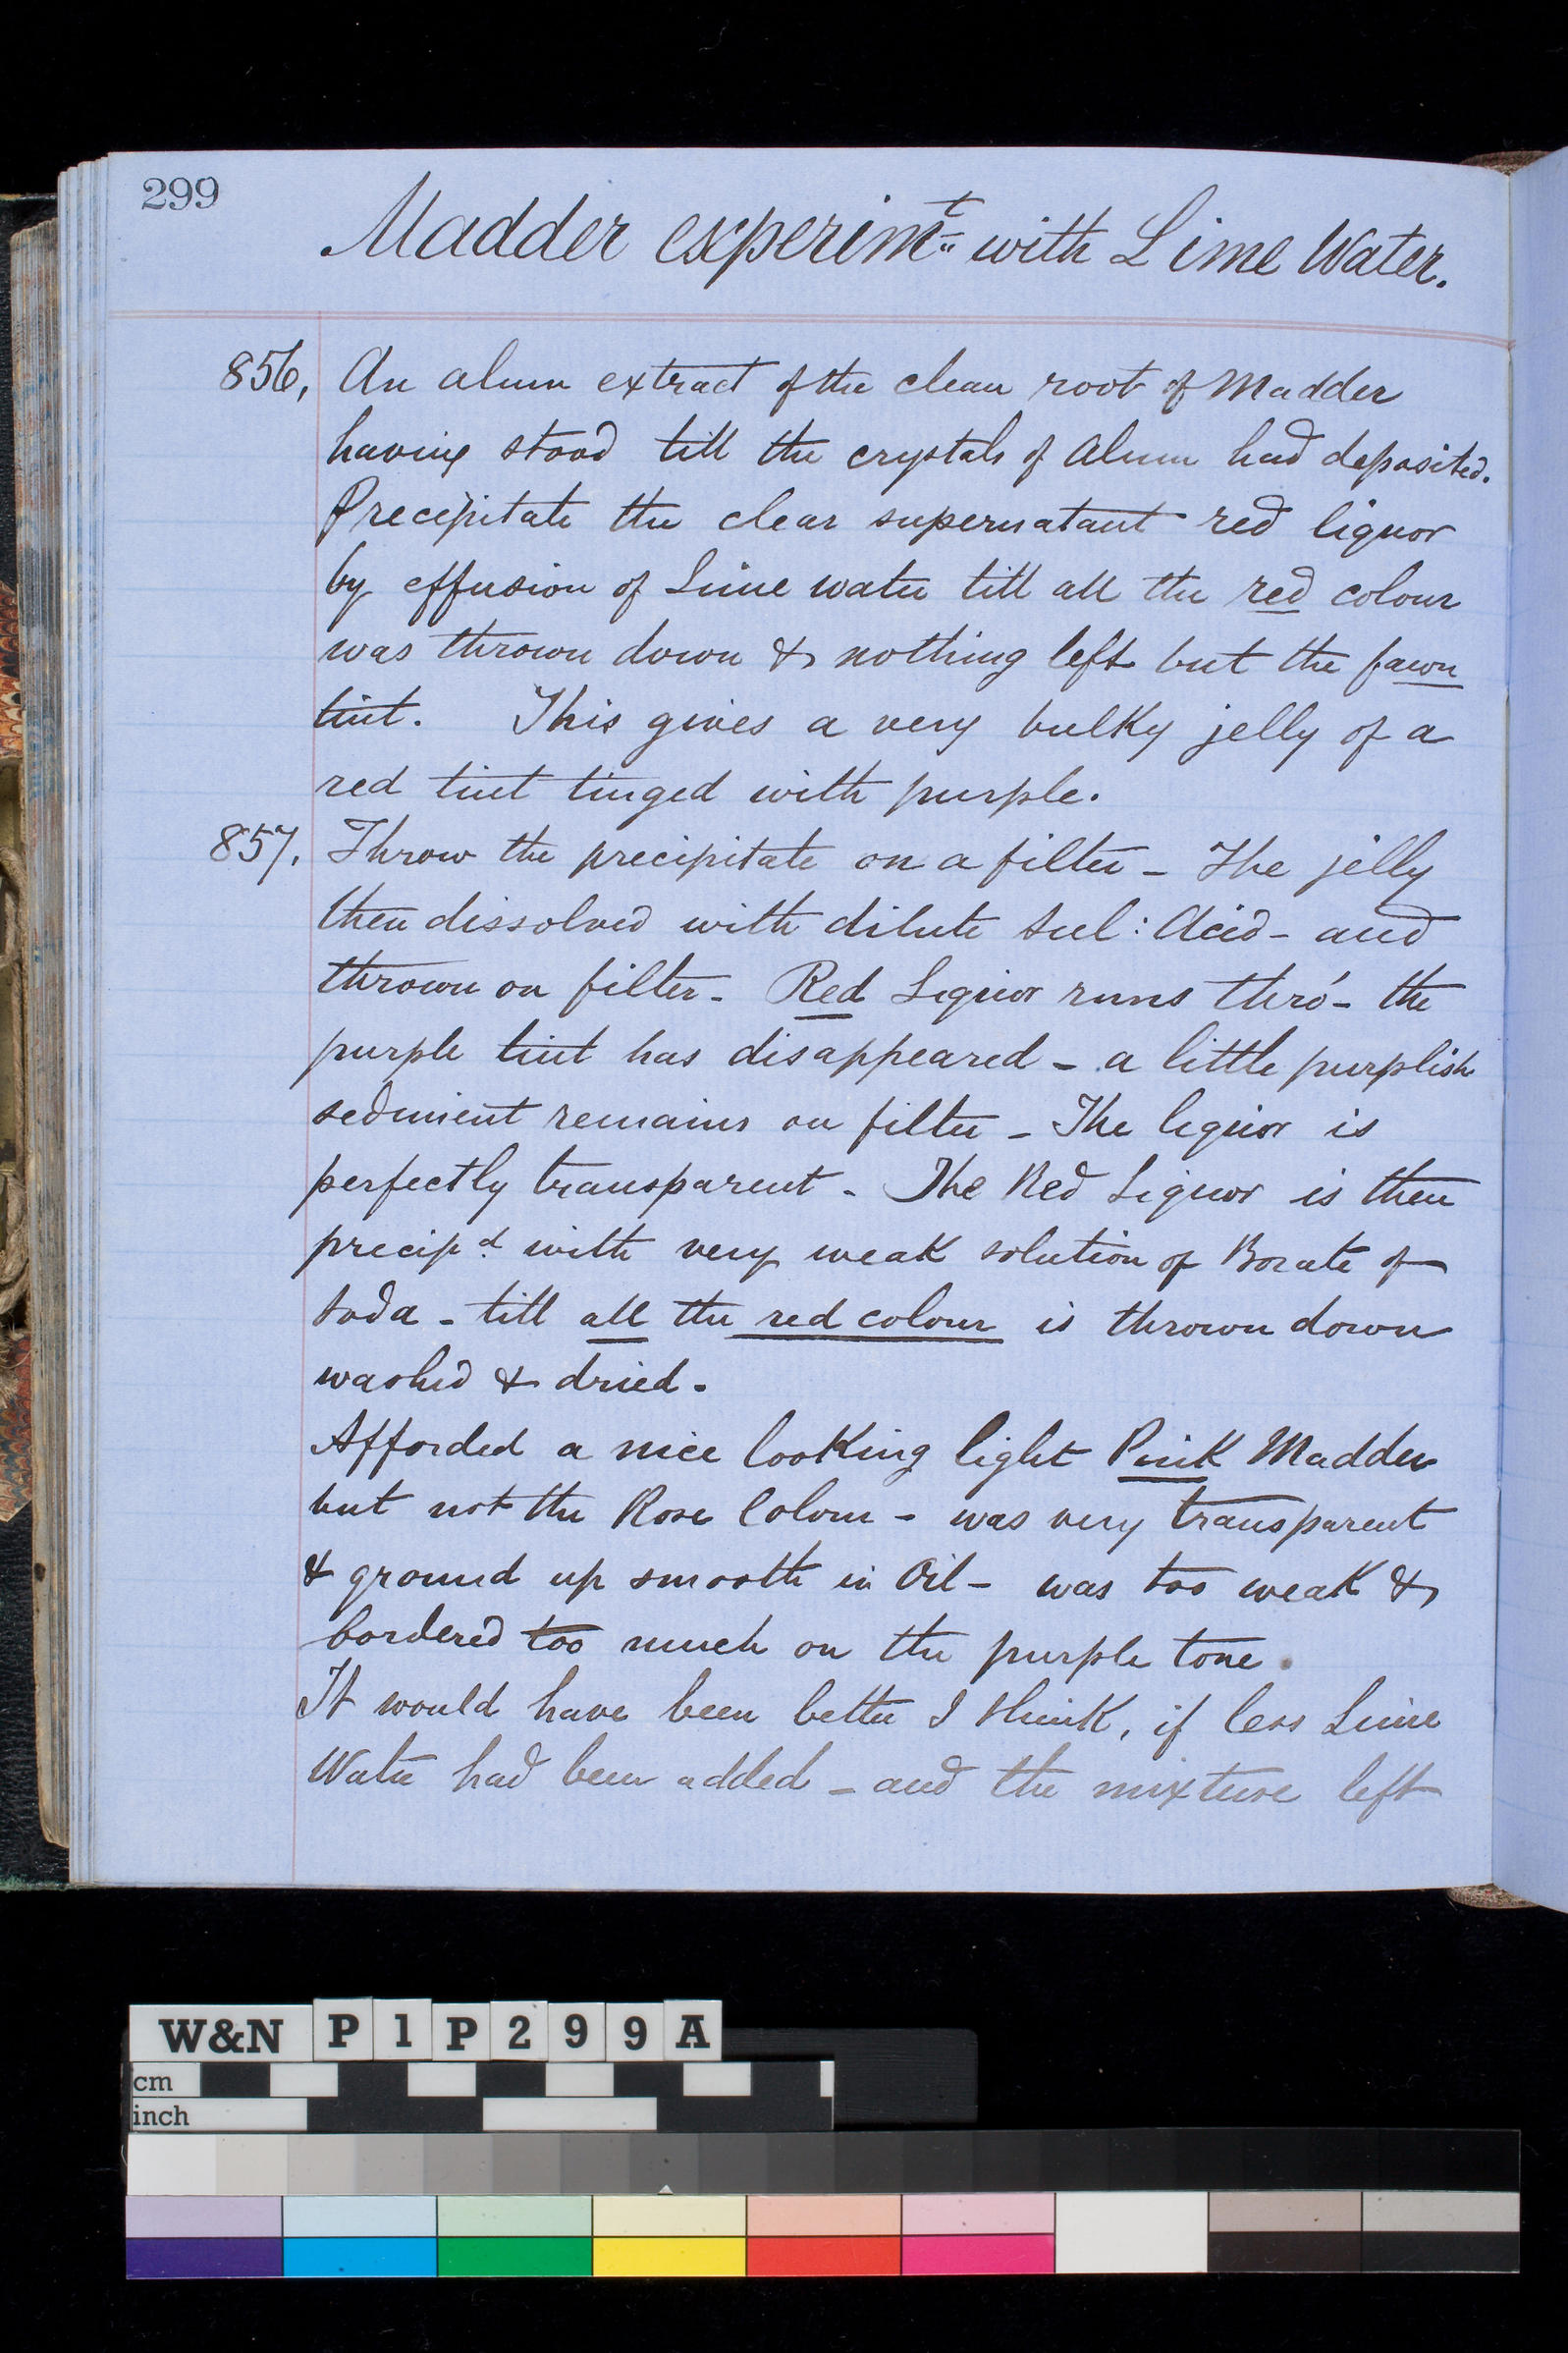 299
Madder experimt with Lime Water.
856, An alum extract of the clean root of Madder
having stood till the crystals of Alum had deposited.
Precipitate the clear supernatant red liquor
by effusion of Lime water till all the red colour
was thrown down & nothing left but the fawn
tint. This gives a very bulky jelly of a
red tint tinged with purple.
857. Throw the precipitate on a filter - The jelly
then dissolved with dilute Sul: Acid - and
thrown on filter - Red Liquor runs thro' - the
purple tint has disappeared - a little purplish
sediment remains on filter - The liquor is
perfectly transparent - The Red Liquor is then
precipd with very weak solution of Borate of
Soda - till all the red colour is thrown down
washed & dried.
Afforded a nice looking light Pink Madder
but not the Rose Colour - was very transparent
& ground up smooth in Oil - was too weak &
bordered too much on the purple tone.
It would have been better I think, if less Lime
Water had been added - and the mixture left
W&N P1P299A
cm
inch